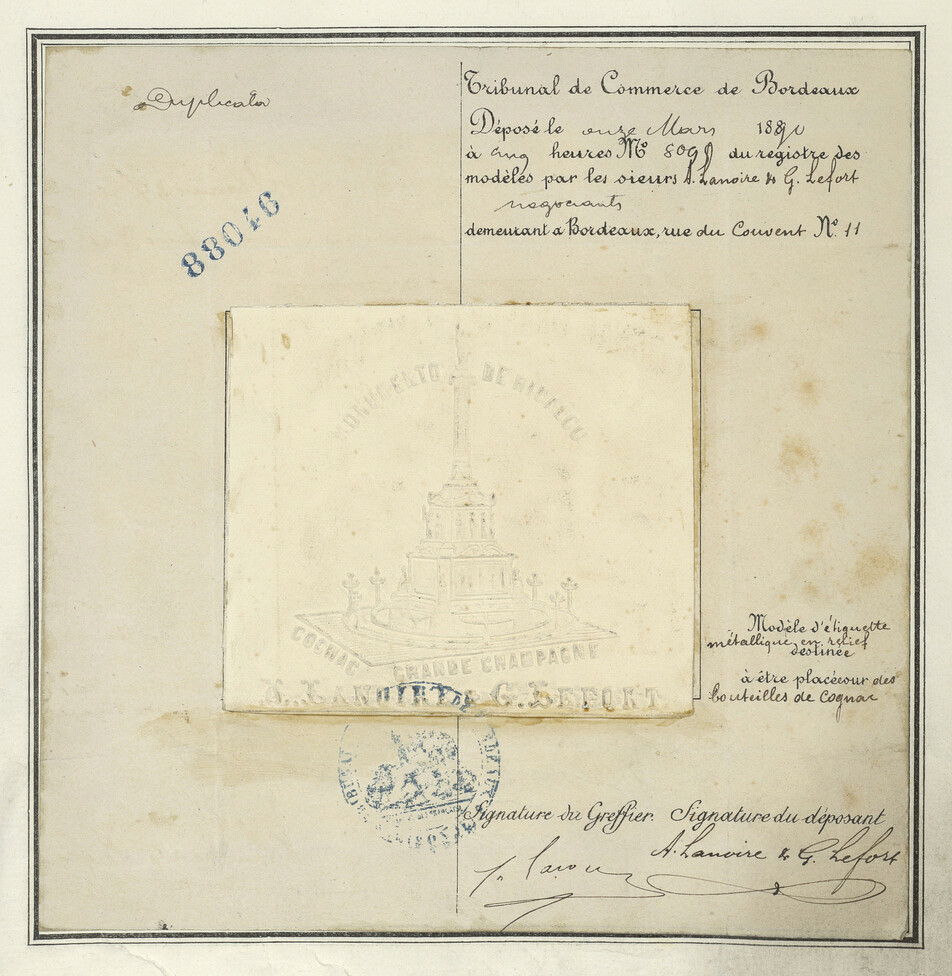 Duplicata
88046
Tribunal de Commerce de Bordeaux
Déposé le onze Mars 1890
à cinq heures No 8098 du registre des
modèles par les sieurs A. Lanoire & G. Lefort
negociants
demeurant a Bordeaux, rue du Couvent No. 11
DE
COGNAC GRANDE CHAMPAGNE
A. LANOIRE & G. LEFORT
Modèle d'étiquette
métallique en relief
destinée
à être placée sur des
bouteilles de Cognac
Signature du Greffier. Signature du déposant
A. Lanoire & G. Lefort